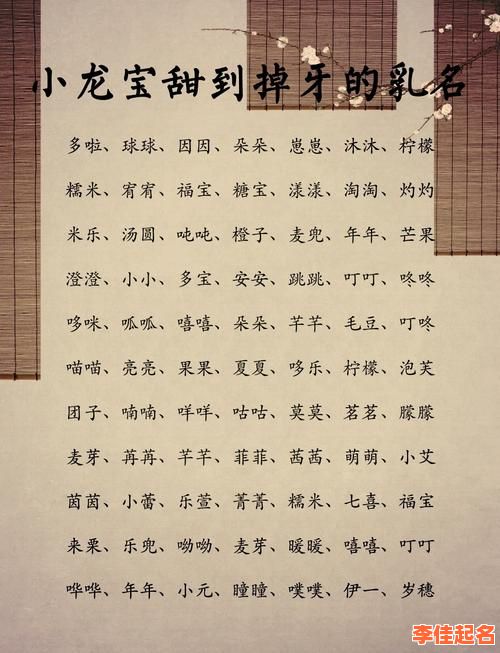 小龙宝甜到掉牙的乳名
多啦、球球、因因、朵朵、崽崽、沐沐、柠檬
糯米、宥宥、福宝、糖宝、漾漾、淘淘、灼灼
米乐、汤圆、吨吨、橙子、麦兜、年年、芒果
澄澄、小小、多宝、安安、跳跳、叮叮、咚咚
哆咪、呱呱、嘻嘻、朵朵、芊芊、毛豆、叮咚
喵喵、亮亮、果果、夏夏、哆乐、柠檬、泡芙
团子、喃喃、咩咩、咕咕、莫莫、茗茗、朦朦
麦芽、苒苒、芊芊、菲菲、茜茜、萌萌、小艾
茵茵、小蕾、乐萱、菁菁、糯米、七喜、福宝
来栗、乐兜、呦呦、麦芽、暖暖、嘻嘻、叮叮
哗哗、年年、小元、瞳瞳、噗噗、伊一、岁穗
李佳起名